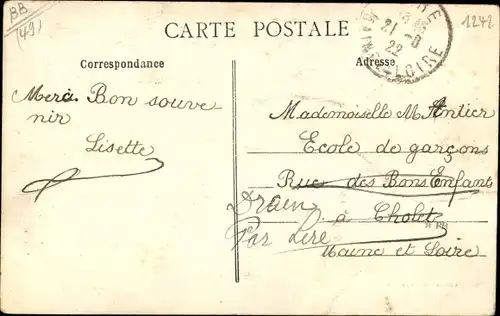 BB
(49)
CARTE POSTALE
21-8
22
LOIRE
1242
Correspondance
Adresse
Merci Bon souve
nir
Lisette
Mademoiselle M Antier
Ecole de garçons
Rue des Bons Enfants
Drain
à Cholet
Par Liré
Maine et Loire